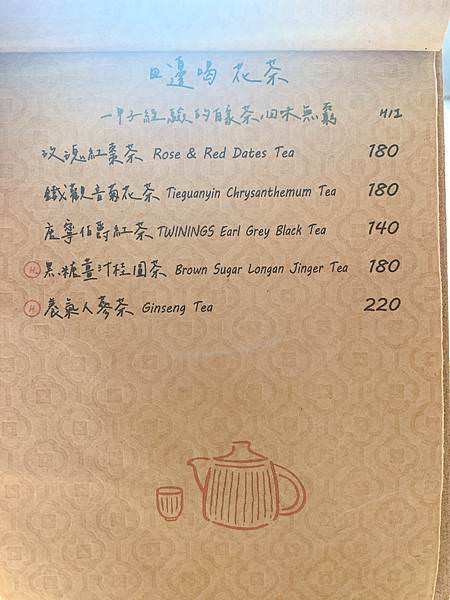 邊喝 花茶
一甲子經驗的自家茶 回味無窮 H/I
玫瑰紅棗茶 Rose & Red Dates Tea 180
鐵漢觀音菊花茶 Tieguanyin Chrysanthemum Tea 180
唐寧伯爵紅茶 TWININGS Earl Grey Black Tea 140
H. 黑糖薑汁桂圓茶 Brown Sugar Longan Jinger Tea 180
H. 養氣人蔘茶 Ginseng Tea 220